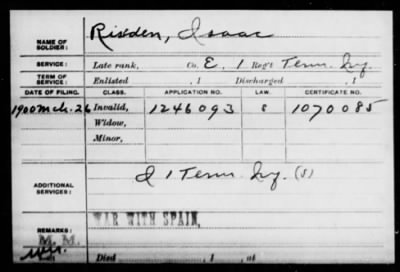 NAME OF SOLDIER: Risden, Isaac
SERVICE: Late rank, Co. E, 1 Reg't Tenn. Inf.
TERM OF SERVICE: Enlisted , 1 Discharged , 1
DATE OF FILING. CLASS. APPLICATION NO. LAW. CERTIFICATE NO.
1900 Mch. 26 Invalid, 1246093 S 1070085
Widow,
Minor,
ADDITIONAL SERVICES: D 1 Tenn. Inf. (S)
WAR WITH SPAIN,
REMARKS:
M. M.
Died , 1 , at